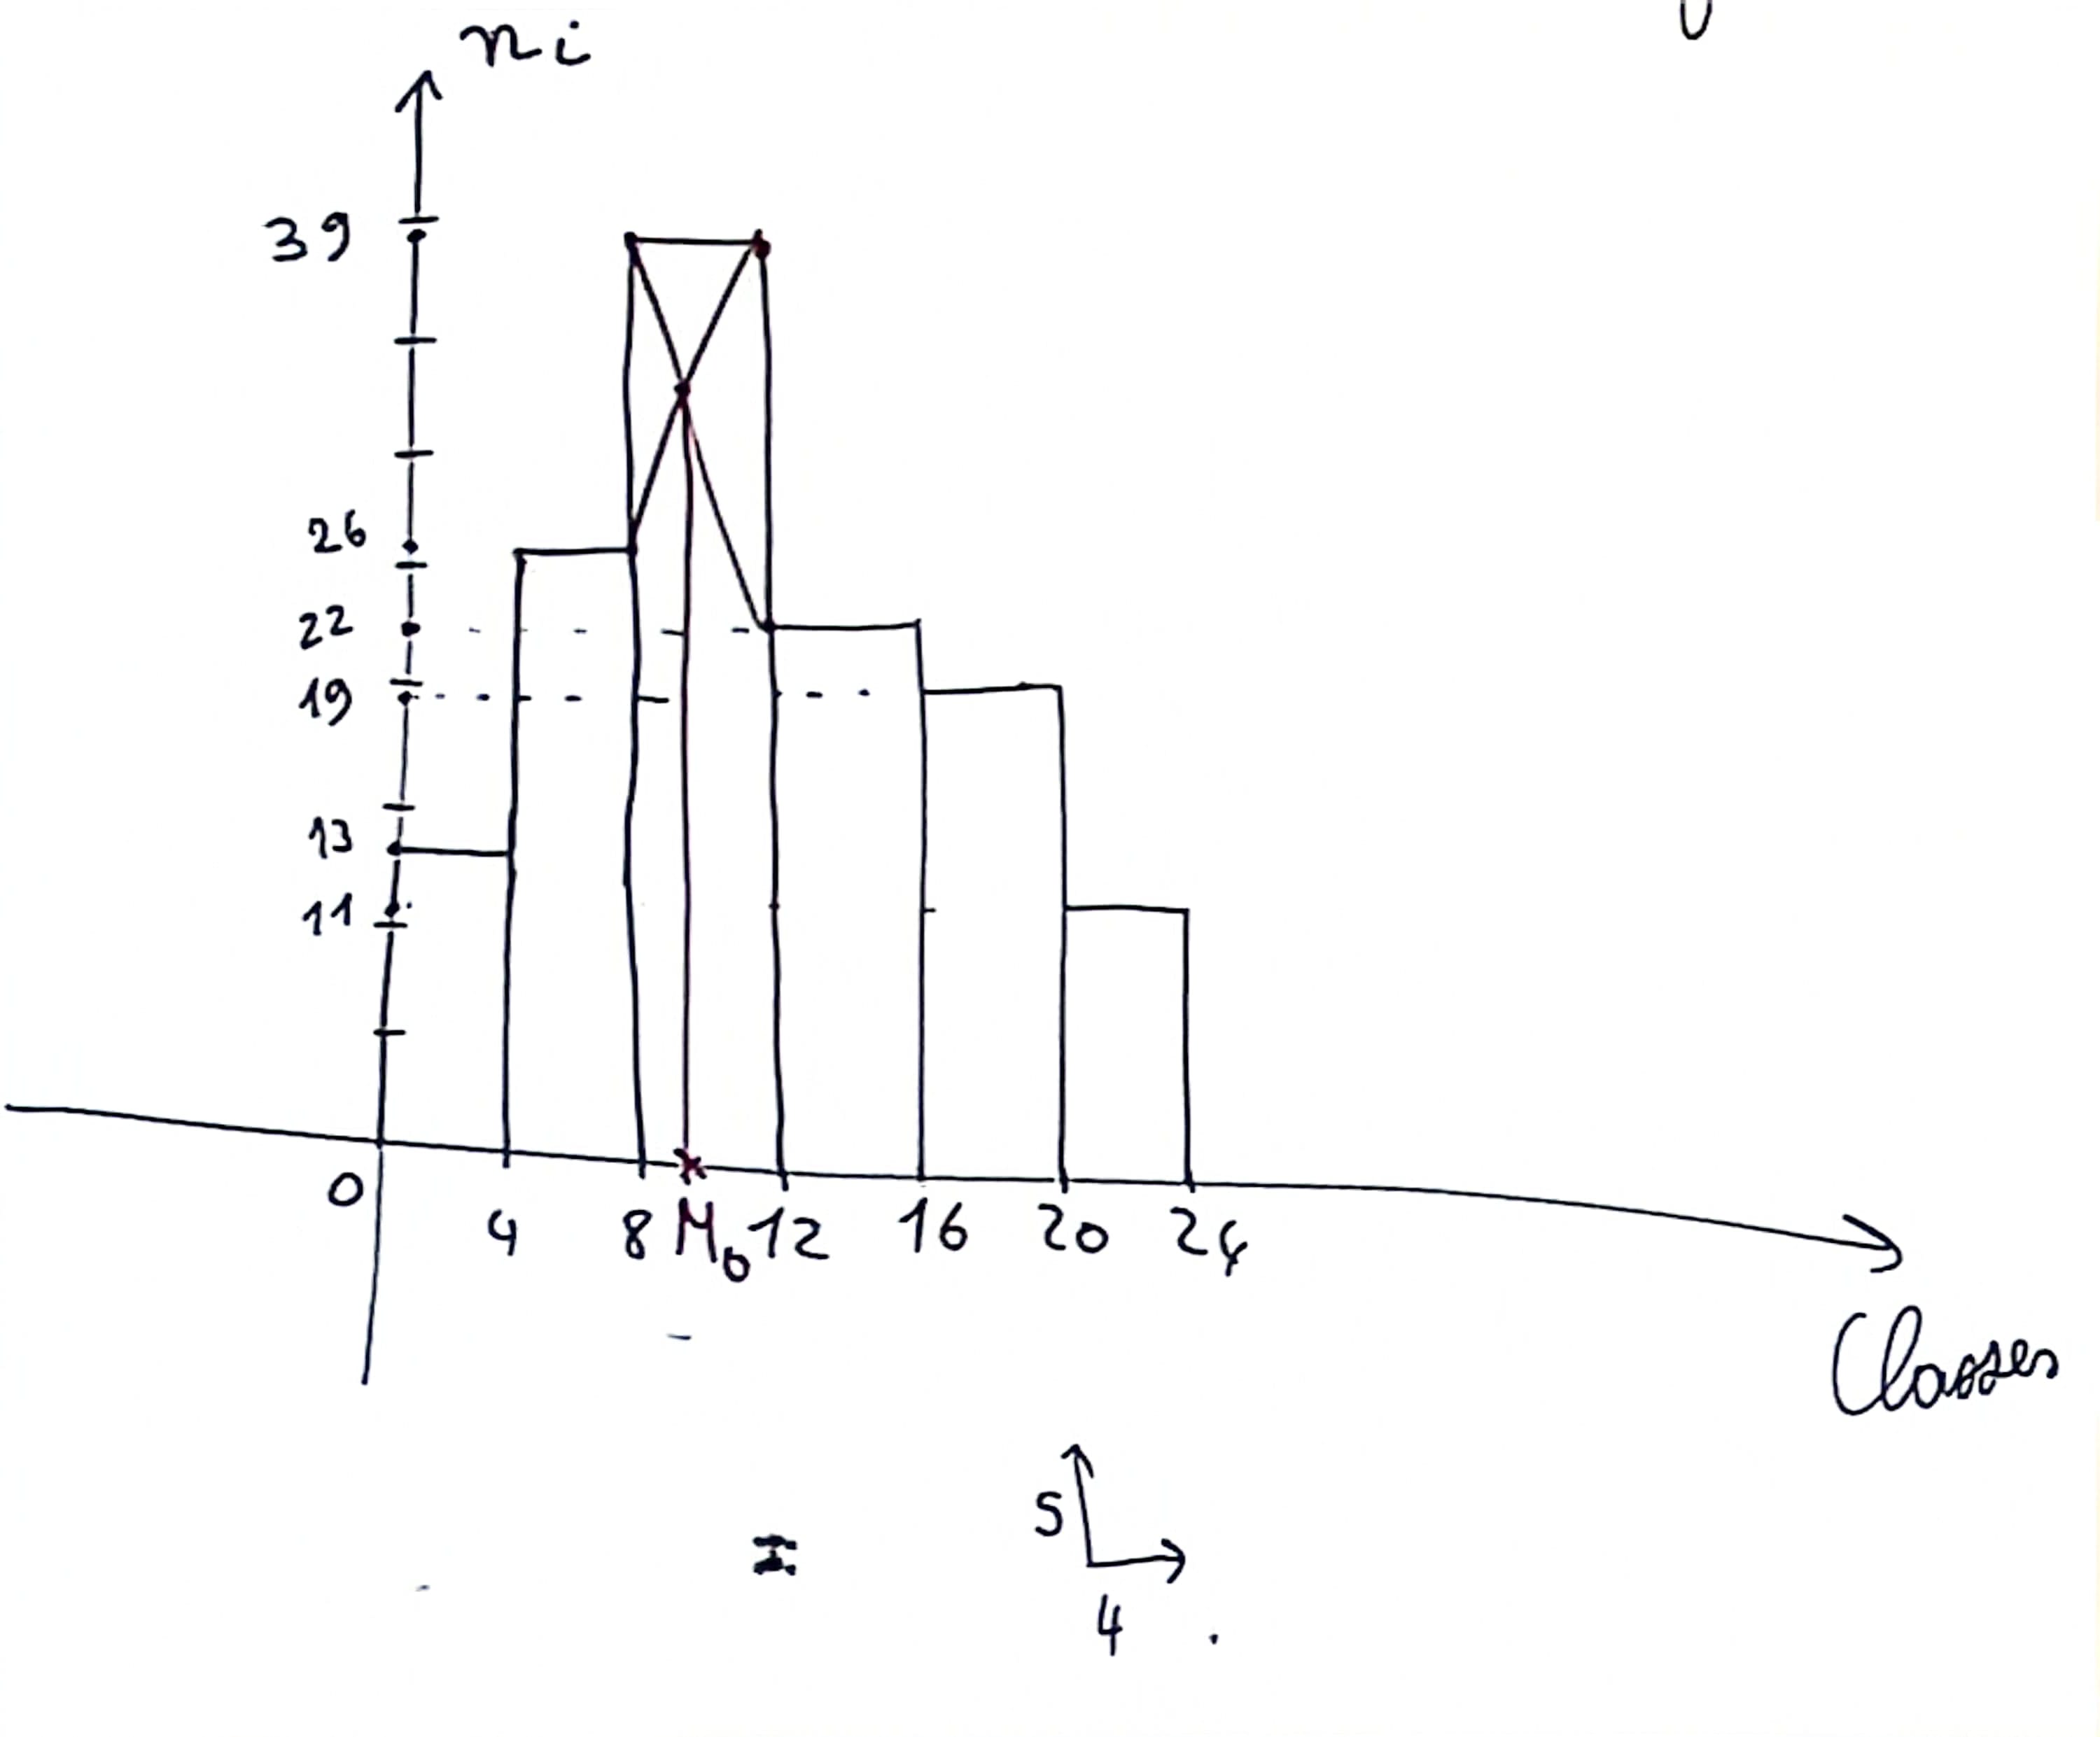 ni
39
26
22
19
13
11
0
4 8 Mo 12 16 20 24
Classes
5
4